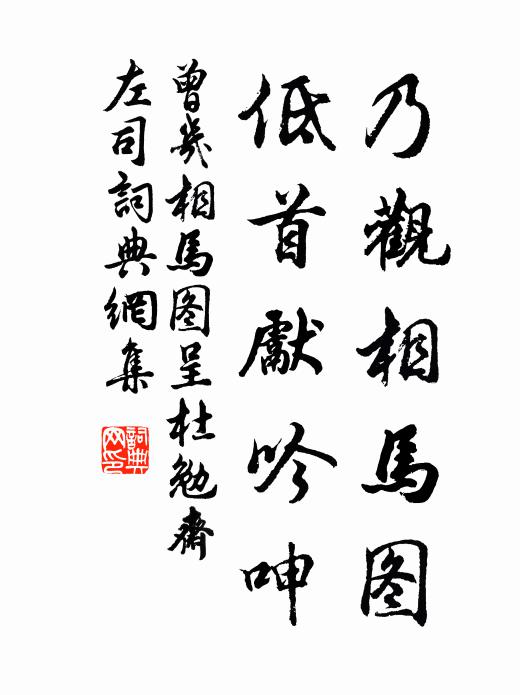 乃觀相馬图
低首獻吟呻
曾幾相馬图呈杜勉齋
左司詞典網集
詞典
网印